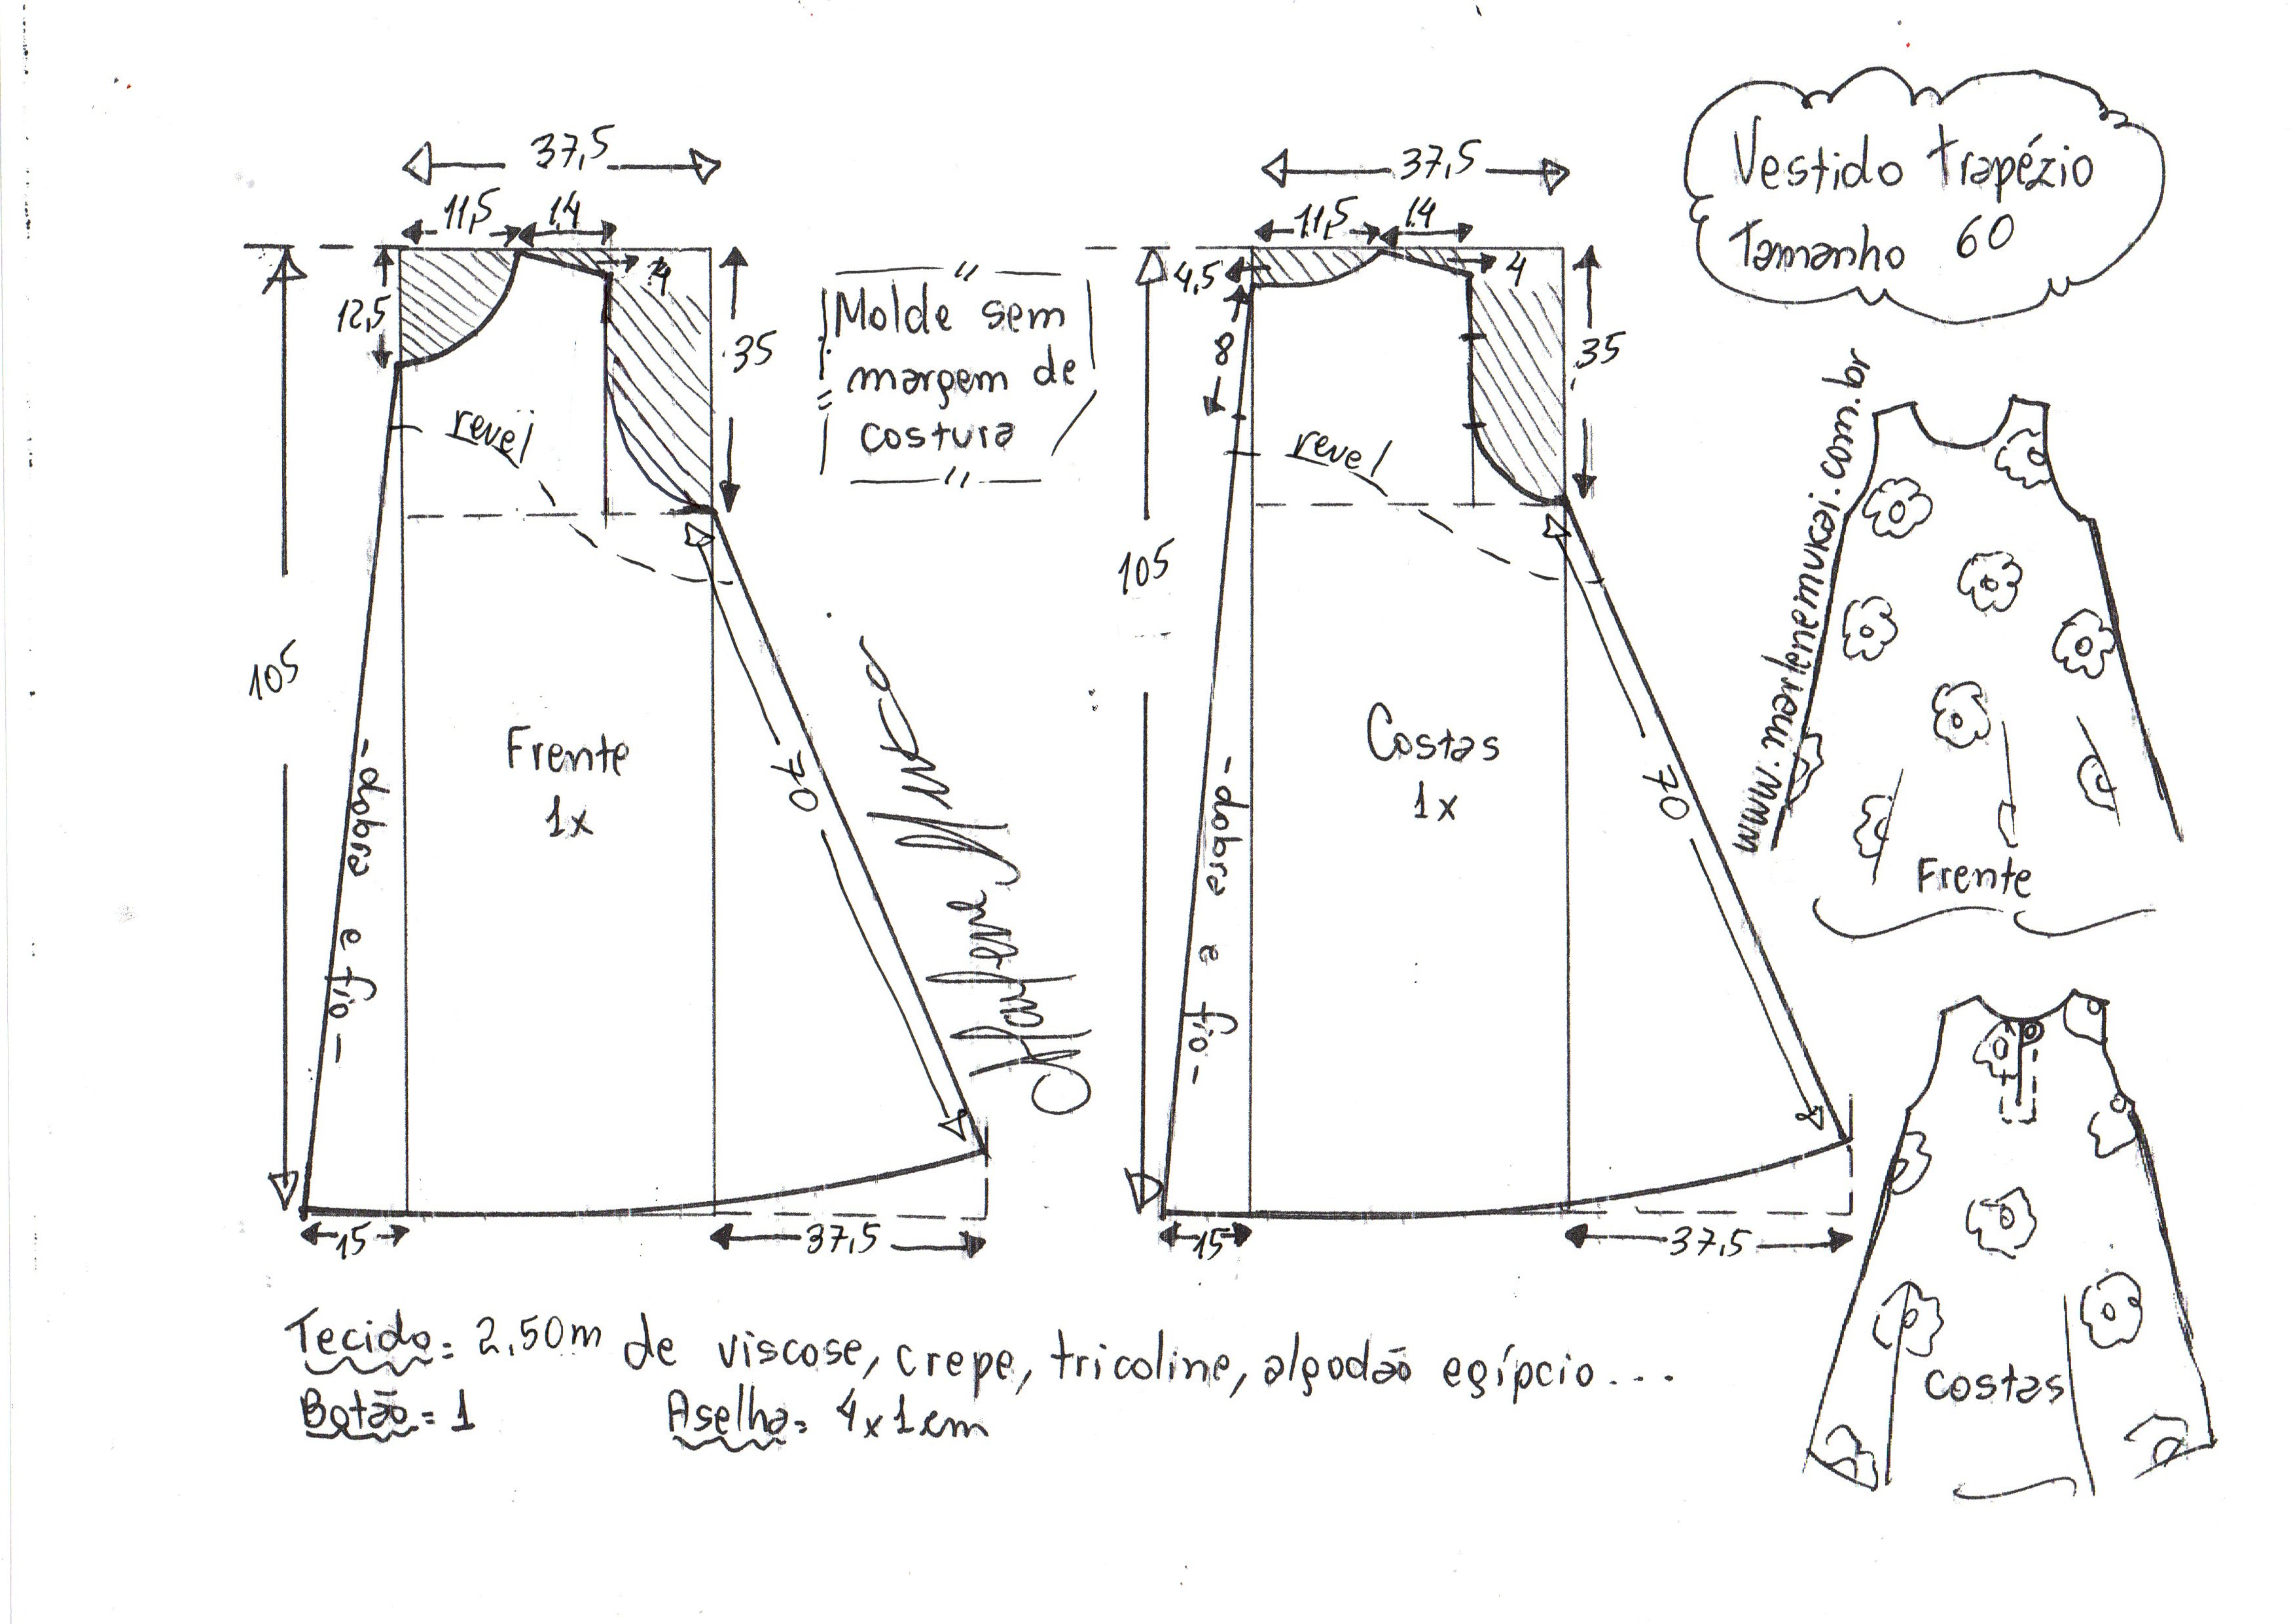 Vestido trapézio
Tamanho 60
37,5
11,5
14
4
12,5
35
105
revel
- dobra e fio -
Frente
1x
70
15
37,5
"
Molde sem
margem de
costura
"
Marlene Mukai
37,5
11,5
14
4,5
4
8
35
105
revel
- dobra e fio -
Costas
1x
70
15
37,5
www.marlenemukai.com.br
Frente
costas
Tecido = 2,50m de viscose, crepe, tricoline, algodão egípcio...
Botão = 1
Aselha = 4x1cm